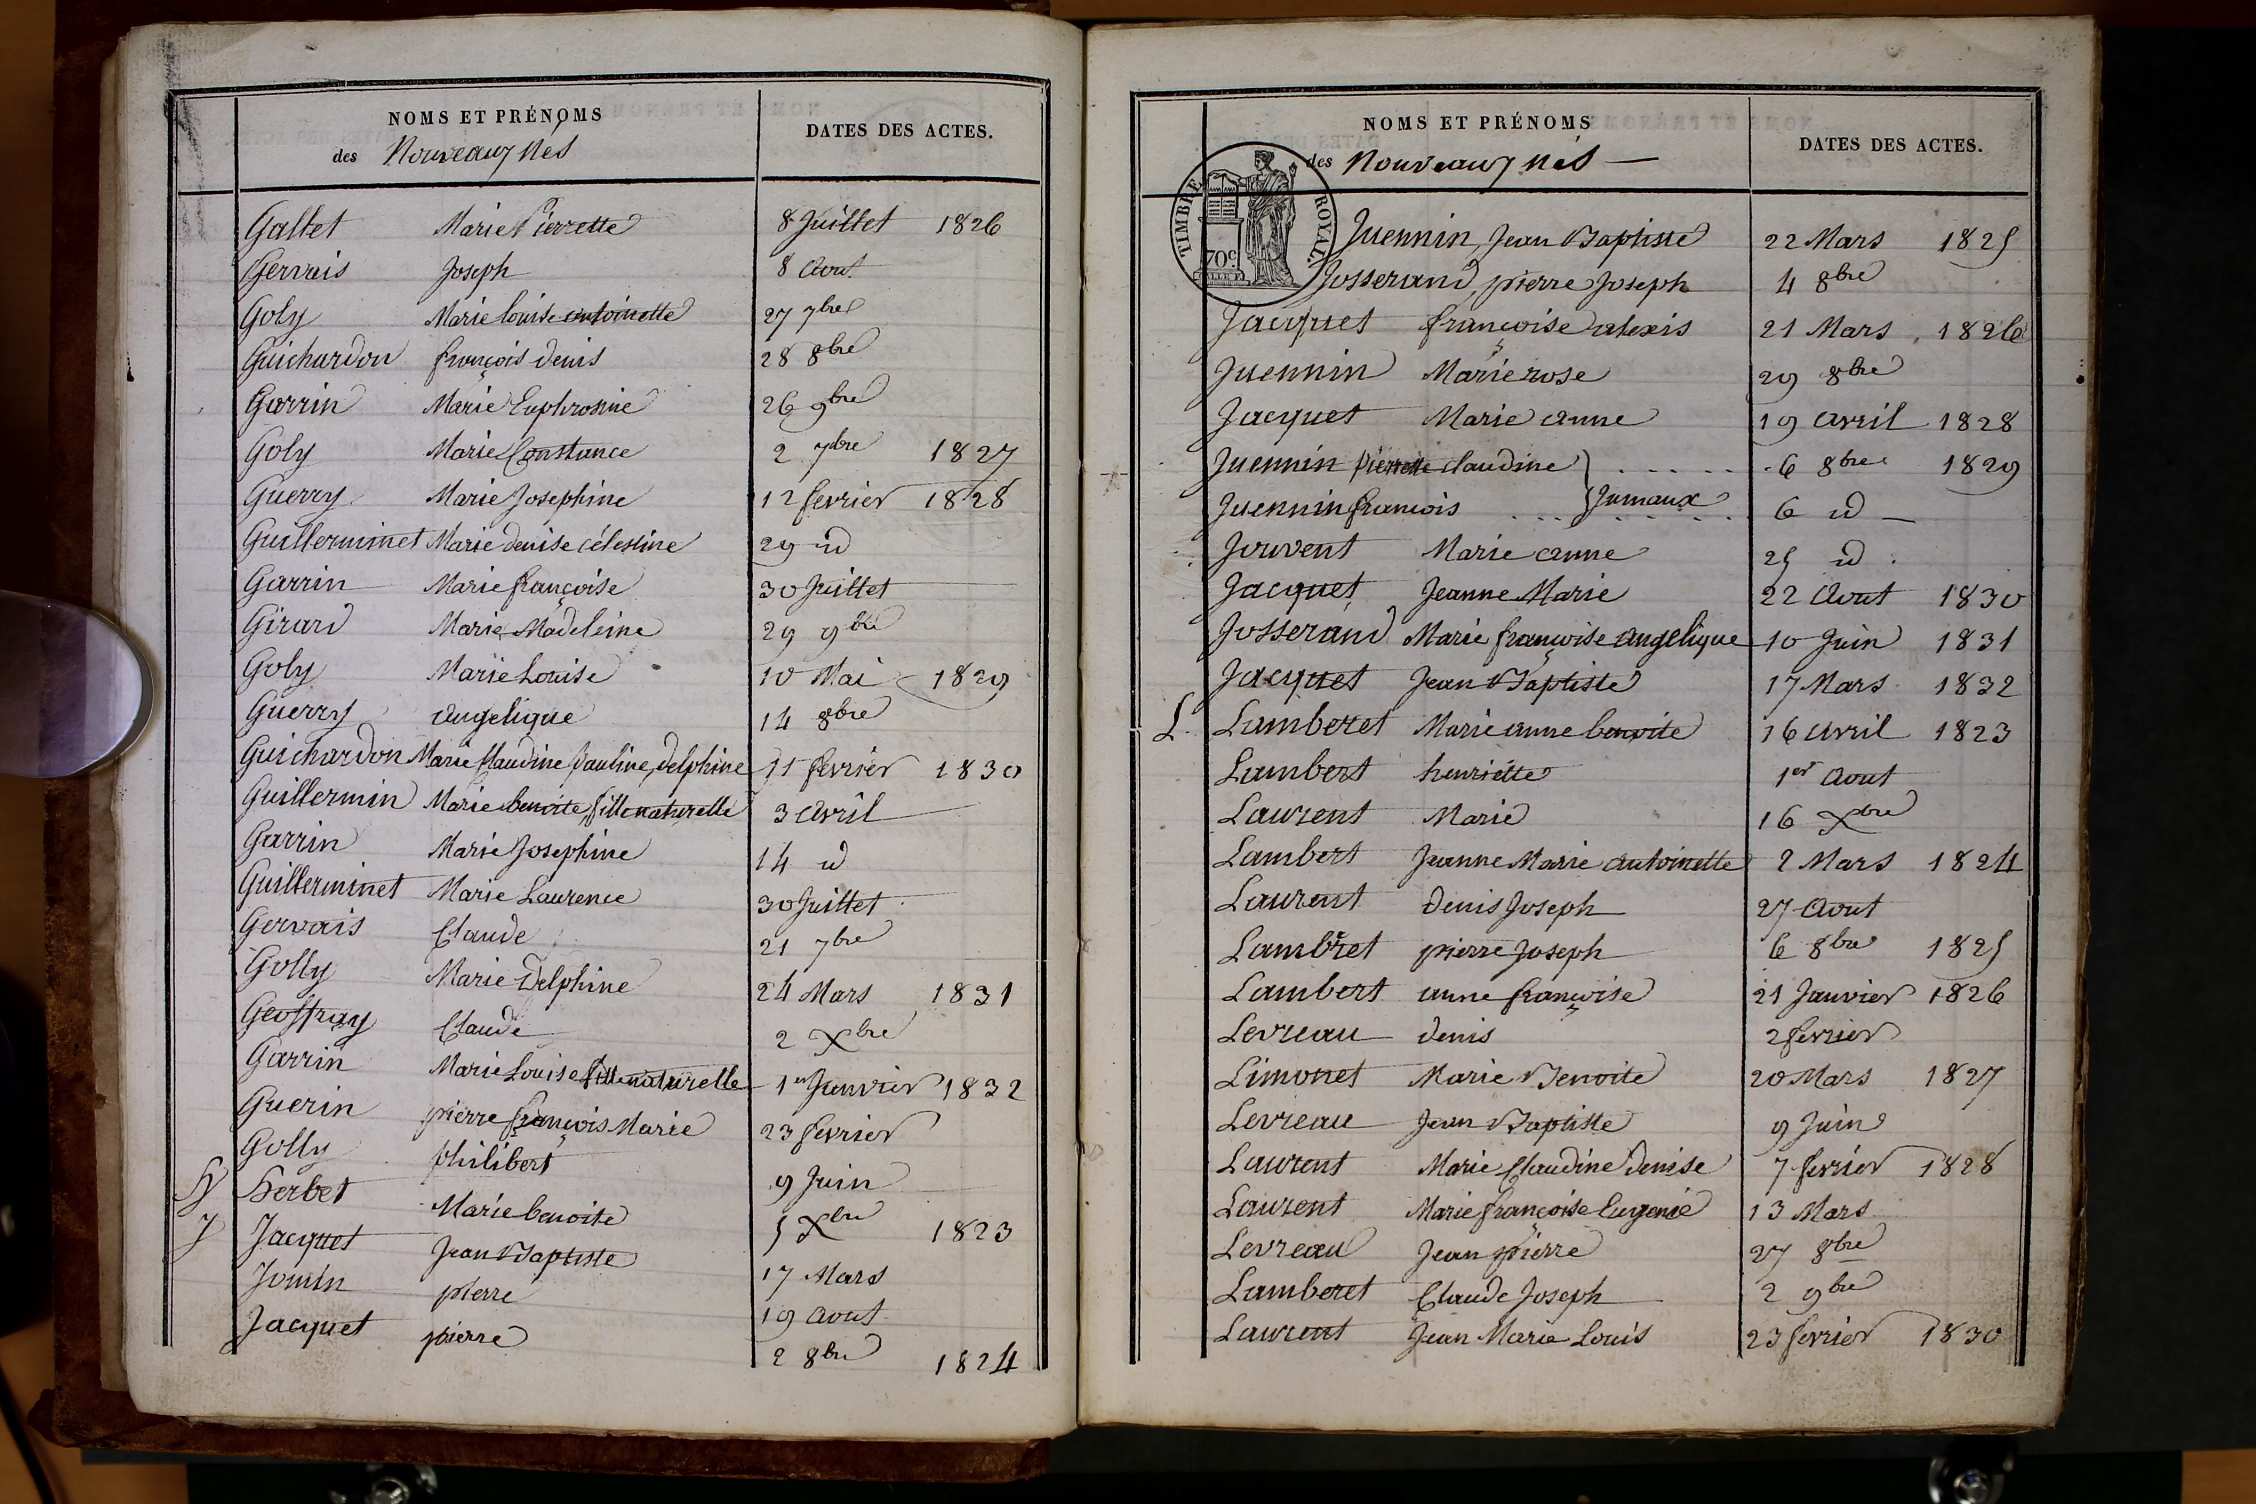 NOMS ET PRÉNOMS
des Nouveaux Nés
DATES DES ACTES.
Galtet Marie Pierrette 8 Juillet 1826
Gervais Joseph 8 Aout
Goly Marie louise antoinette 27 7bre
Guichardon françois denis 28 8bre
Garrin Marie Euphrosine 26 9bre
Goly Marie Constance 2 7bre 1827
Guerry Marie Josephine 12 fevrier 1828
Guillerminet Marie denise célestine 29 id
Garrin Marie françoise 30 Juillet
Girard Marie Madeleine 29 9bre
Goly Marie Louise 10 Mai 1829
Guerry angelique 14 8bre
Guichardon Marie Claudine Pauline, delphine 11 fevrier 1830
Guillermin Marie benoite, fille naturelle 3 avril
Garrin Marie Josephine 14 id
Guillerminet Marie Laurence 30 Juillet
Gervais Claude 21 7bre
Golly Marie Delphine 24 Mars 1831
Geoffray Claude 2 Xbre
Garrin Marie Louise fille naturelle 1er Janvier 1832
Guerin pierre françois Marie 23 fevrier
Golly philibert 9 Juin
H Herbet Marie benoite 5 Xbre 1823
J Jacquet Jean Baptiste 17 Mars
Jomin pierre 19 Aout
Jacquet pierre 2 8bre 1824
NOMS ET PRÉNOMS
des Nouveaux nés
DATES DES ACTES.
TIMBRE ROYAL.
70c
Juennin, Jean Baptiste 22 Mars 1825
Josserand, pierre Joseph 4 8bre
Jacquet françoise alexis 21 Mars 1826
Juennin Marie rose 29 8bre
Jacquet Marie anne 19 avril 1828
Juennin pierrette claudine } 6 8bre 1829
Juennin francois } Jumaux 6 id
Jouvent Marie anne 25 id
Jacquet Jeanne Marie 22 Aout 1830
Josserand Marie françoise angelique 10 Juin 1831
Jacquet Jean Baptiste 17 Mars 1832
L. Lamberet Marie anne benoite 16 avril 1823
Lambert henriette 1er Aout
Laurent Marie 16 Xbre
Lambert Jeanne Marie antoinette 2 Mars 1824
Laurent Denis Joseph 27 Aout
Lambret pierre Joseph 6 8bre 1825
Lambert anne françoise 21 Janvier 1826
Levreau denis 2 fevrier
Limonet Marie Benoite 20 Mars 1827
Levreau Jean Baptiste 9 Juin
Laurent Marie Claudine Denise 7 fevrier 1828
Laurent Marie françoise Eugenie 13 Mars
Levreau Jean pierre 27 8bre
Lamberet Claude Joseph 2 9bre
Laurent Jean Marie Louis 23 fevrier 1830